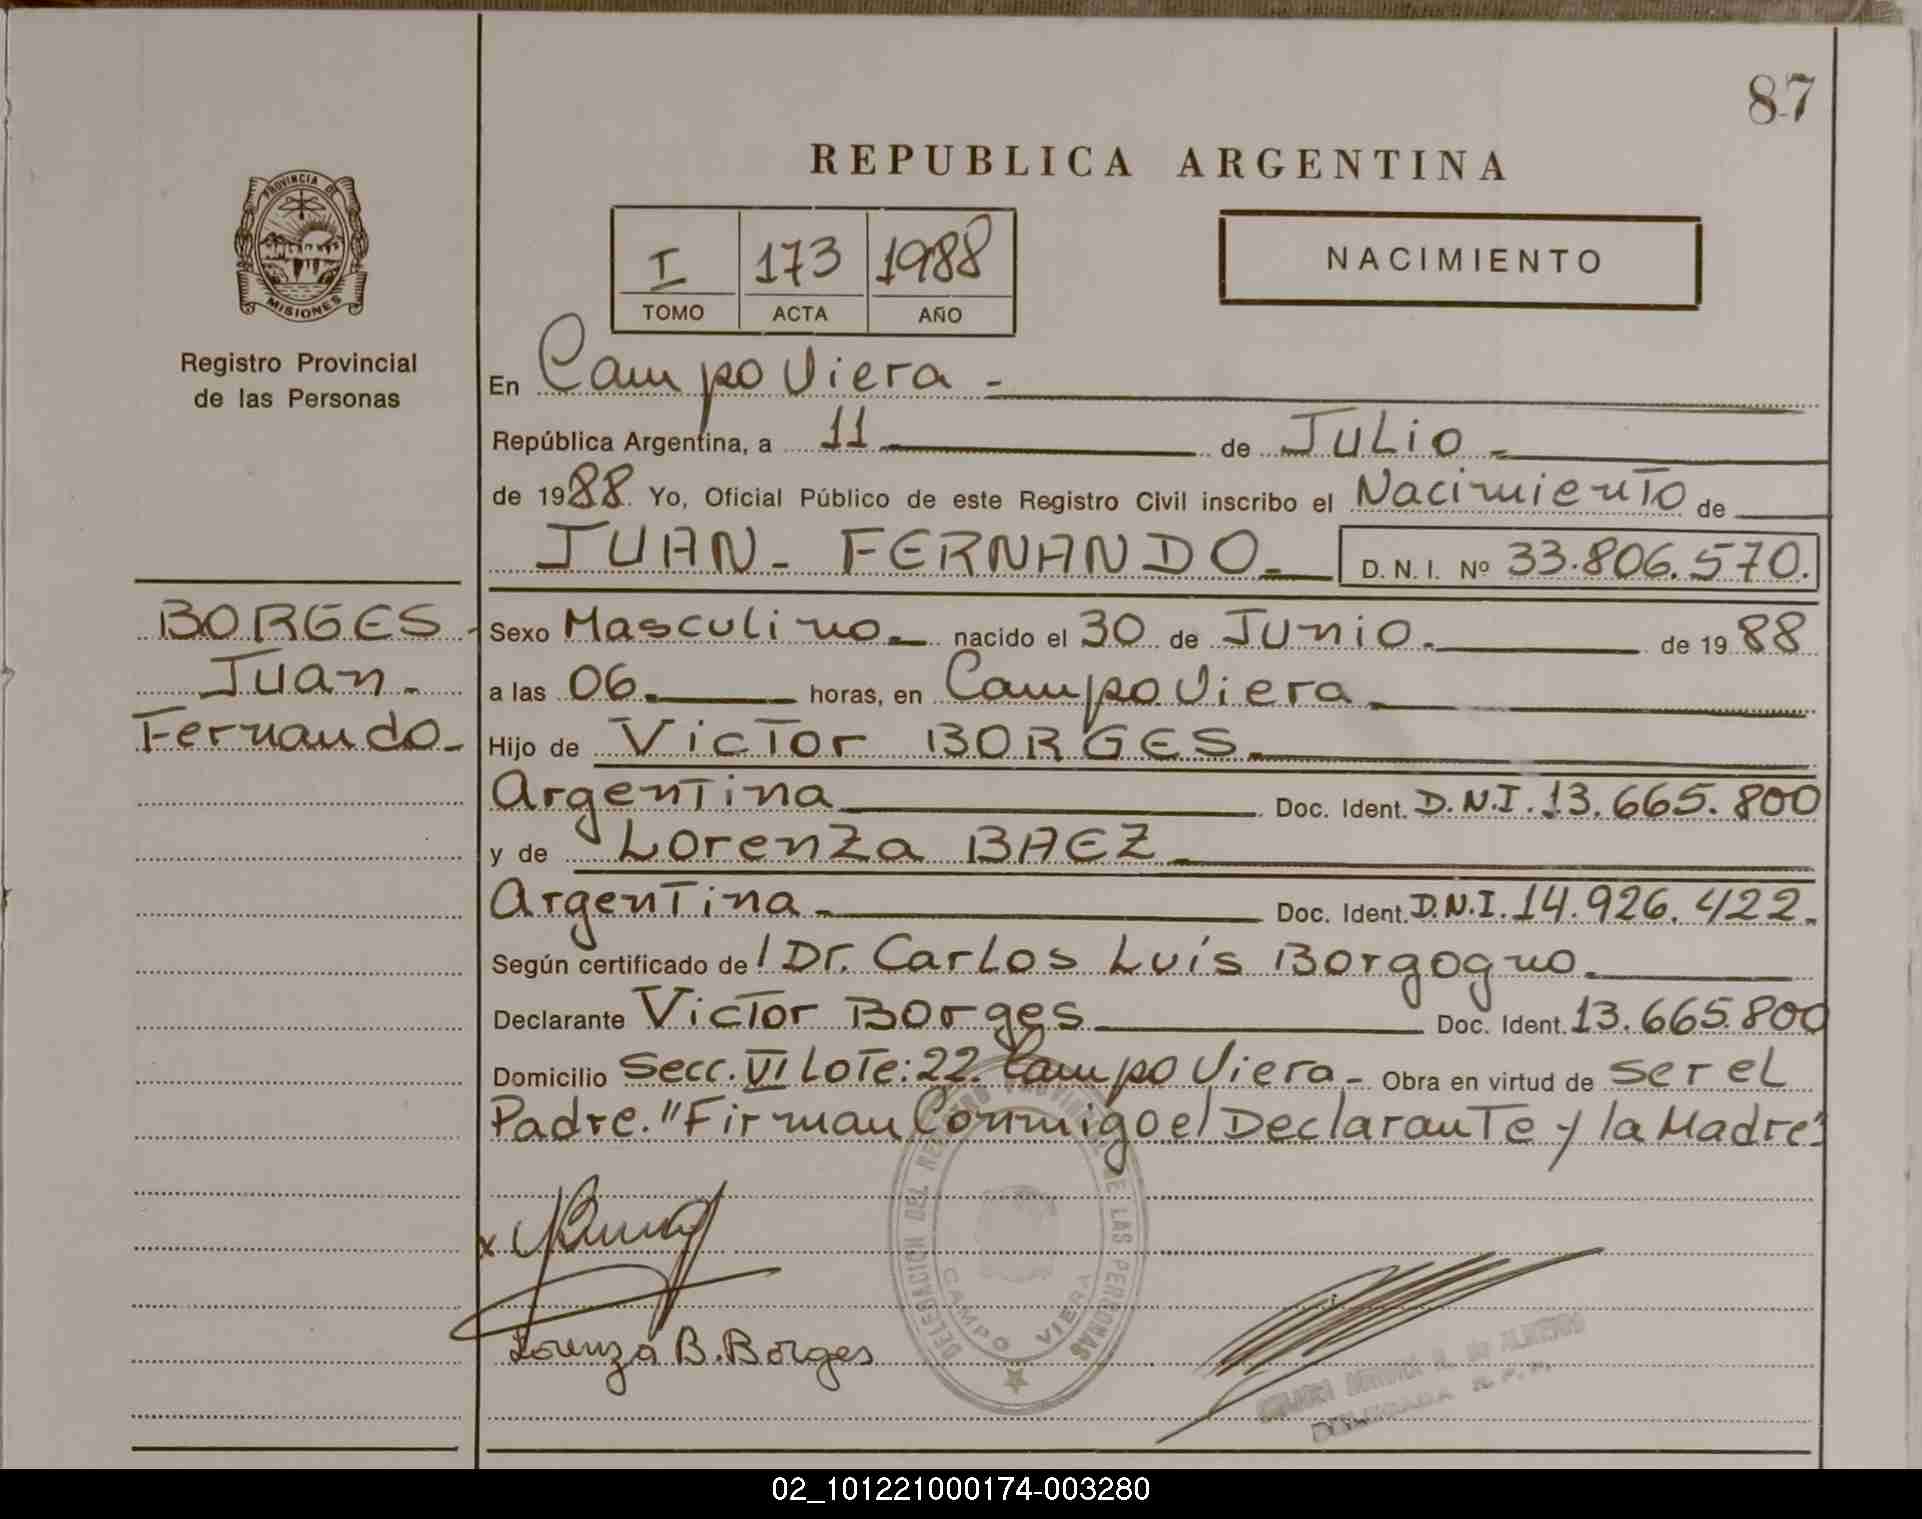 87
REPUBLICA ARGENTINA
PROVINCIA DE
MISIONES
Registro Provincial
de las Personas
I 173 1988
TOMO ACTA AÑO
NACIMIENTO
En Campo Viera -
República Argentina, a 11 de JULIO -
de 1988. Yo, Oficial Público de este Registro Civil inscribo el Nacimiento de
JUAN - FERNANDO - D. N. I. Nº 33.806.570.
BORGES -
Juan -
Fernando -
Sexo Masculino - nacido el 30 de Junio - de 1988
a las 06 - horas, en Campo Viera -
Hijo de Victor BORGES -
Argentina Doc. Ident. D.N.I. 13.665.800
y de Lorenza BAEZ -
Argentina - Doc. Ident. D.N.I. 14.926.422.
Según certificado de / Dr. Carlos Luís Borgogno -
Declarante Victor Borges Doc. Ident. 13.665.800
Domicilio Secc. VI Lote: 22. Campo Viera - Obra en virtud de ser el
Padre. "Firman Conmigo el Declarante y la Madre"
DELEGACION DEL REGISTRO PROVINCIAL DE LAS PERSONAS
CAMPO VIERA
x
Lorenza B. Borges
DELEGADA R. P. P.
02_101221000174-003280